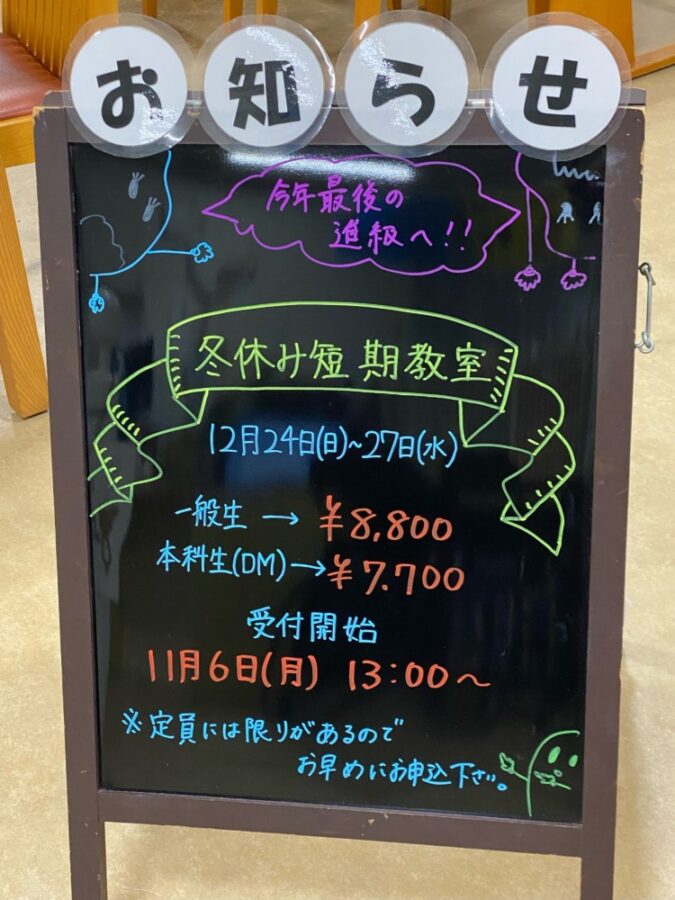 お知らせ
今年最後の
進級へ!!
冬休み短期教室
12月24日(日)~27日(水)
一般生 → ¥8,800
本科生(DM)→¥7.700
受付開始
11月6日(月) 13:00~
※定員には限りがあるので
お早めにお申込下さい。